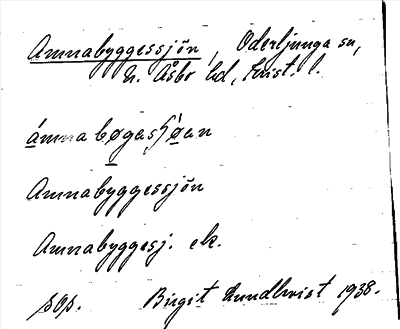 Amnabyggessjön, Oderljunga sn,
N. Åsbo hd, Krist. l.
Amnabyggessjön
Amnabyggesj. ek.
sep. Birgit Lundkvist 1938.